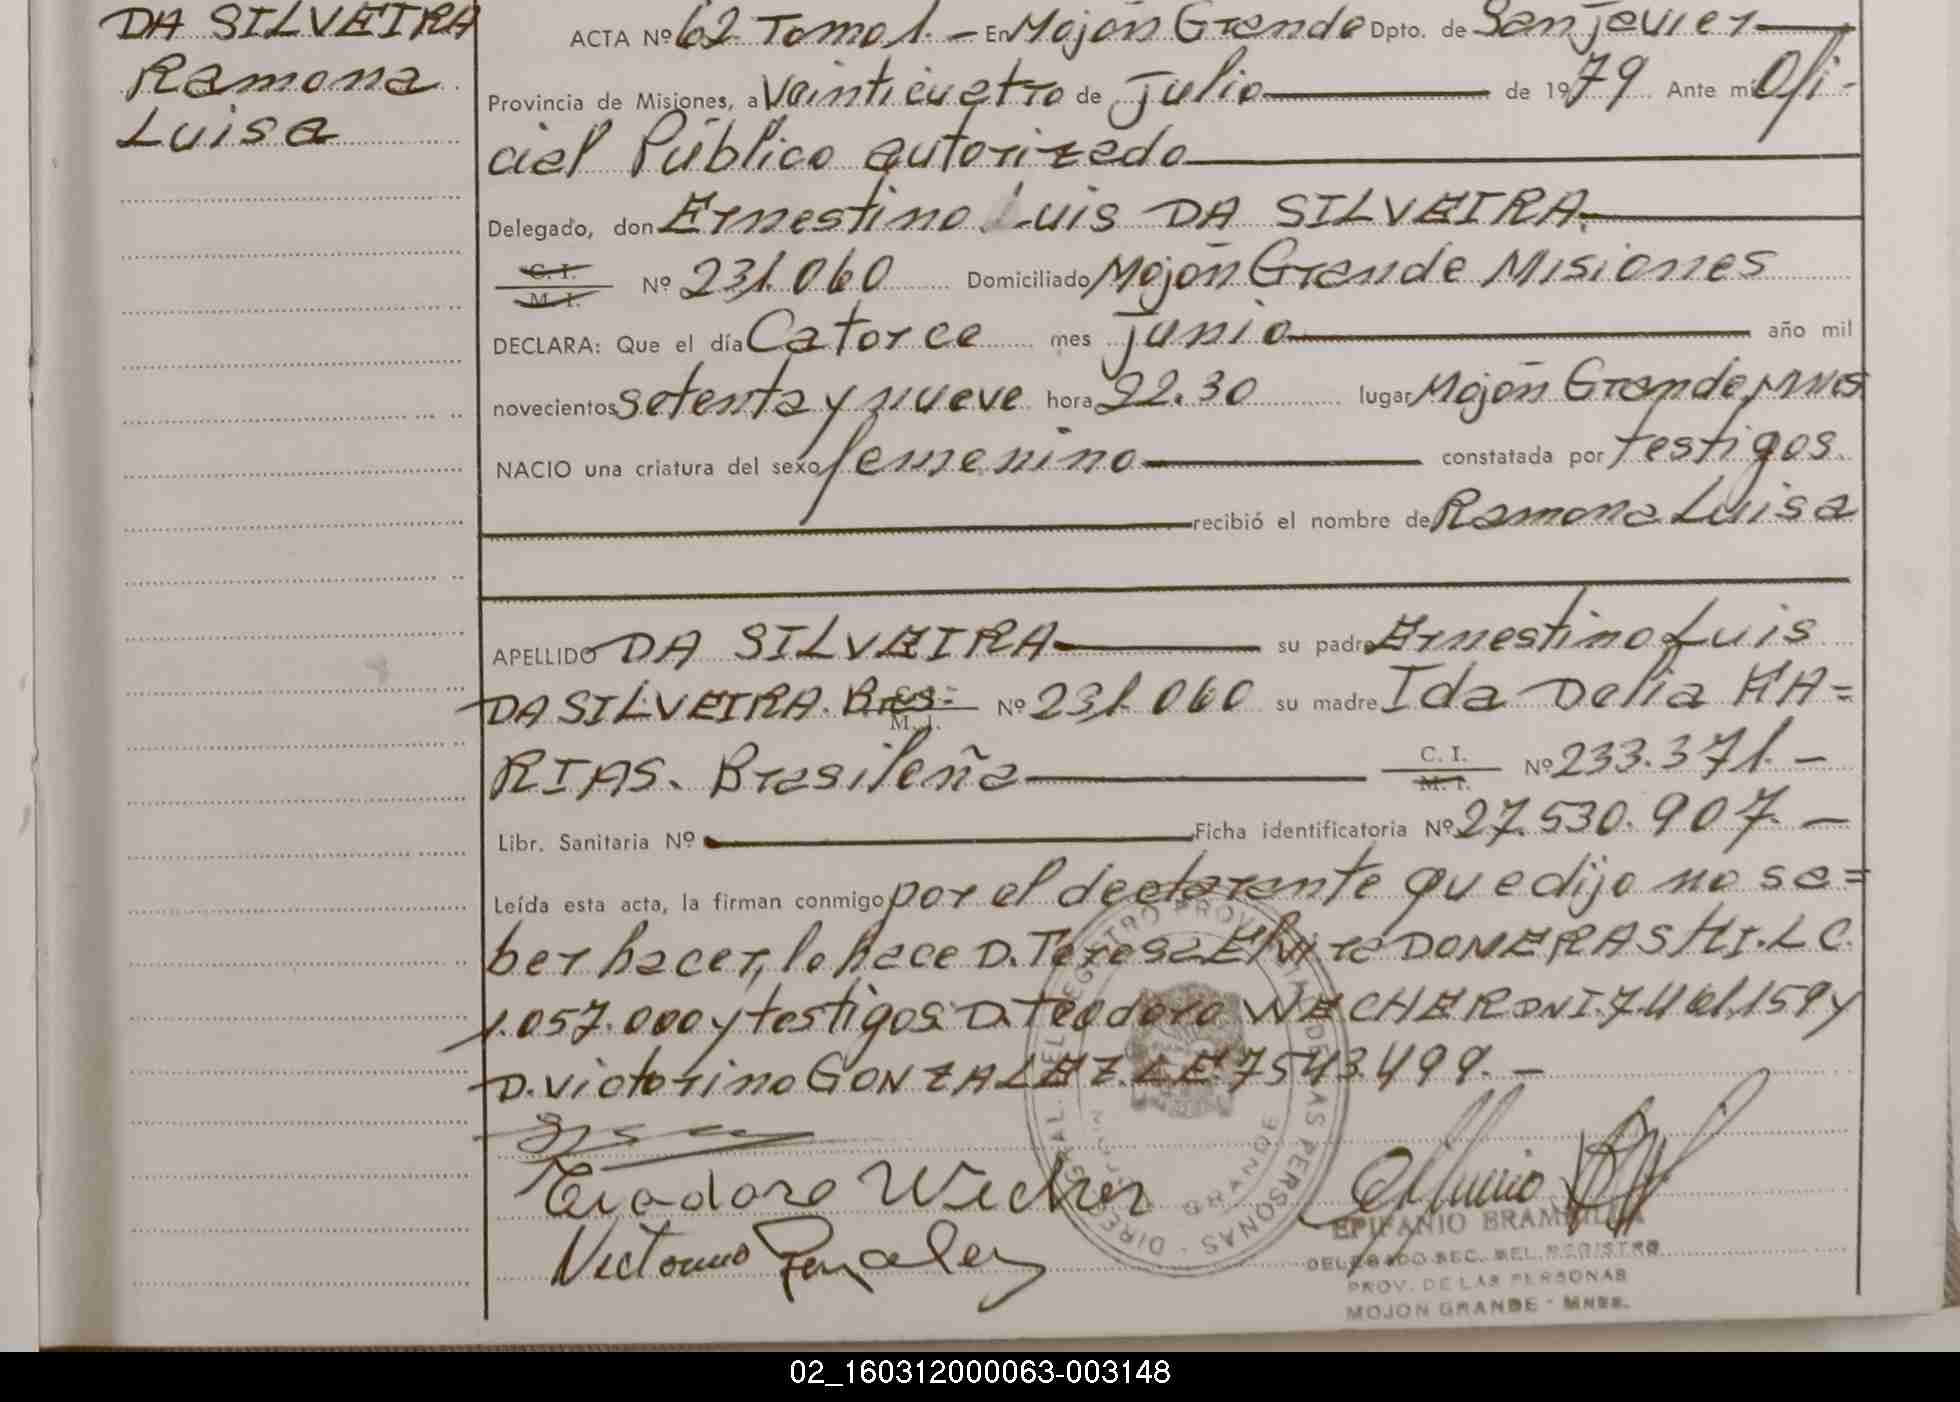 DA SILVEIRA
Ramona
Luisa
ACTA Nº 62 Tomo 1. - En Mojón Grande Dpto. de San Javier
Provincia de Misiones, a Veinticuatro de Julio de 1979 Ante mi Ofi-
cial Público autorizado
Delegado, don Ernestino Luis DA SILVEIRA.
C. I.
M. I. Nº 231.060 Domiciliado Mojón Grande Misiones
DECLARA: Que el día Catorce mes Junio año mil
novecientos setenta y nueve hora 22.30 lugar Mojón Grande, Mnes
NACIO una criatura del sexo femenino constatada por testigos.
recibió el nombre de Ramona Luisa
APELLIDO DA SILVEIRA su padre Ernestino Luis
DA SILVEIRA. Bres. M. I. Nº 231.060 su madre Ida Delia KA=
RIAS. Brasileña C. I. M. I. Nº 233.371. -
Libr. Sanitaria Nº Ficha identificatoria Nº 27.530.907. -
Leída esta acta, la firman conmigo por el declarante que dijo no sa=
ber hacer, lo hace D. Teresa Elvira DONERASHI. L C.
1.057.000 y testigos D. Teodoro WECHER DNI. 7.461.159 y
D. Victorino GONZALEZ. L E. 7543.499. -
Teodoro Wecher
Victorino Gonzalez
DIRECC GRAL. DEL REGISTRO PROVINCIAL DE LAS PERSONAS
GRANDE
EPIFANIO
DELEGADO SEC. DEL REGISTRO
PROV. DE LAS PERSONAS
MOJON GRANDE - MNES.
02_160312000063-003148